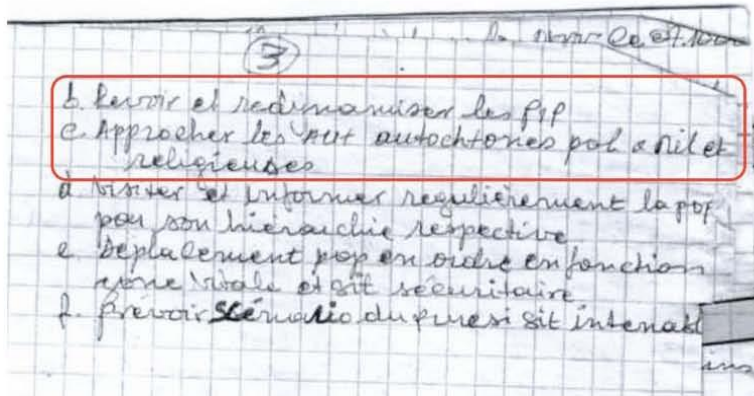 3
b. Revoir et redinamiser les PIP
c. Approcher les Aut autochtones pol a Mil et
religieuses
d. Visiter et informer regulièrement la pop
par son hiérarchie respective
e. Déplacement pop en ordre en fonction
zone vitale et sit sécuritaire
f. Prévoir scénario du pire si sit intenabl
ins